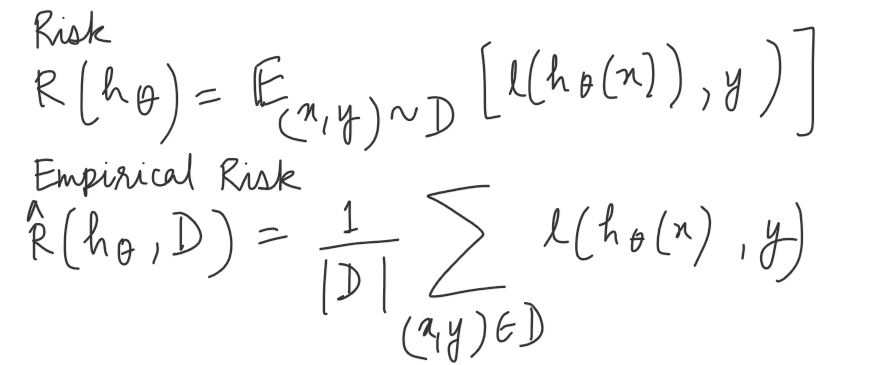 Risk
R(hθ) = 𝔼_(x,y)~D [l(hθ(x)), y)]
Empirical Risk
R̂(hθ, D) = 1/|D| ∑_(x,y)∈D l(hθ(x), y)